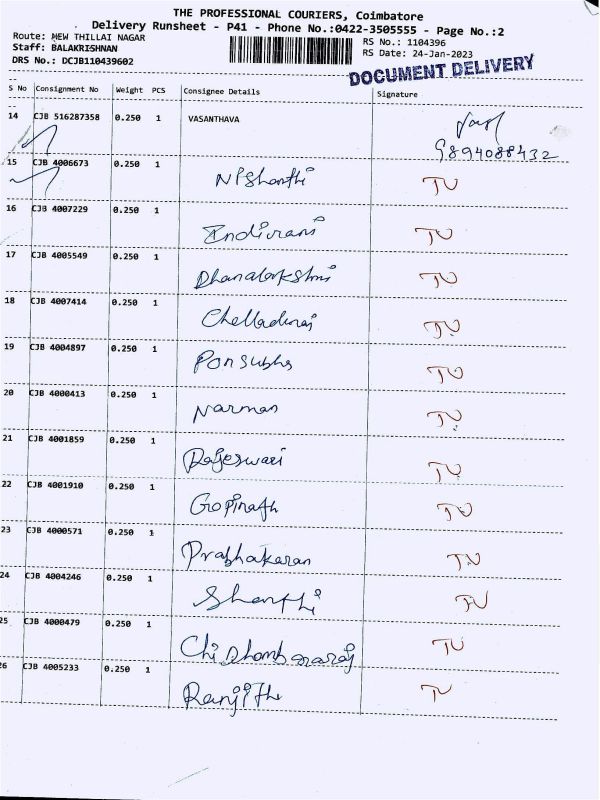 THE PROFESSIONAL COURIERS, Coimbatore
Delivery Runsheet - P41 - Phone No.:0422-3505555 - Page No.:2
Route: NEW THILLAI NAGAR
Staff: BALAKRISHNAN
DRS No.: DCJB110439602
RS No.: 1104396
RS Date: 24-Jan-2023
DOCUMENT DELIVERY
S No Consignment No Weight PCS Consignee Details Signature
14 CJB 516287358 0.250 1 VASANTHAVA
9894088432
15 CJB 4006673 0.250 1 Nishanthi TU
16 CJB 4007229 0.250 1 Indirani TU
17 CJB 4005549 0.250 1 Dhanalakshmi TU
18 CJB 4007414 0.250 1 Chelladurai TU
19 CJB 4004897 0.250 1 Ponsubha TU
20 CJB 4000413 0.250 1 Narman TU
21 CJB 4001859 0.250 1 Rajeswari TU
22 CJB 4001910 0.250 1 Gopinath TU
23 CJB 4000571 0.250 1 Prabhakaran TU
24 CJB 4004246 0.250 1 Shanthi TU
25 CJB 4000479 0.250 1 TU
26 CJB 4005233 0.250 1 Ranjith TU